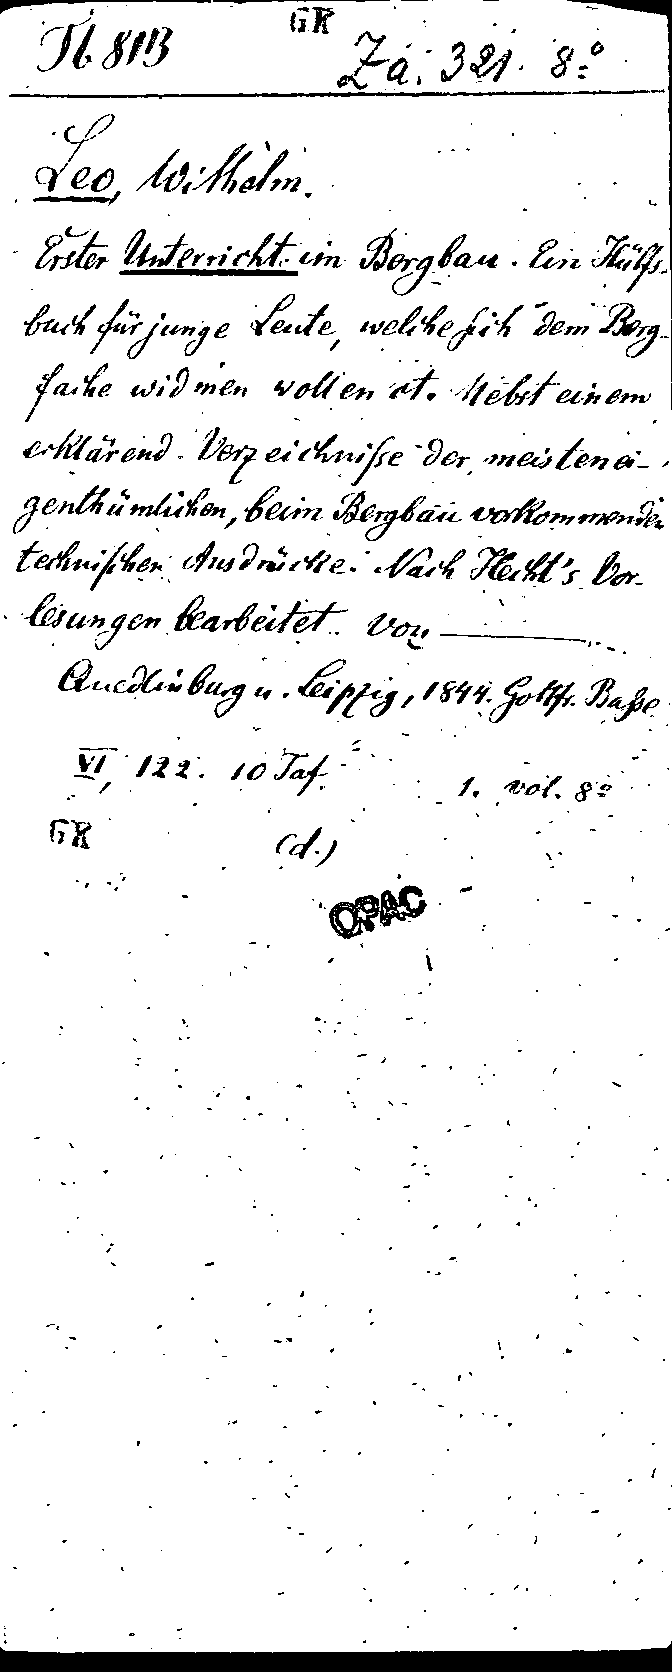 GR
Tb 811B Za. 321. 8º
Leo, Wilhelm.
Erster Unterricht im Bergbau. Ein Hülfs-
buch für junge Leute, welche sich dem Berg-
fache widmen wollen et. Nebst einem
erklärend. Verzeichnisse der meisten ei-
genthümlichen, beim Bergbau vorkommenden
technischen Ausdrücke. Nach Hecht's Vor-
lesungen bearbeitet. Von
Quedlinburg u. Leipzig, 1844. Gottfr. Basse
VI, 122. 10 Taf. 1. vol. 8º
GR (d.)
OPAC